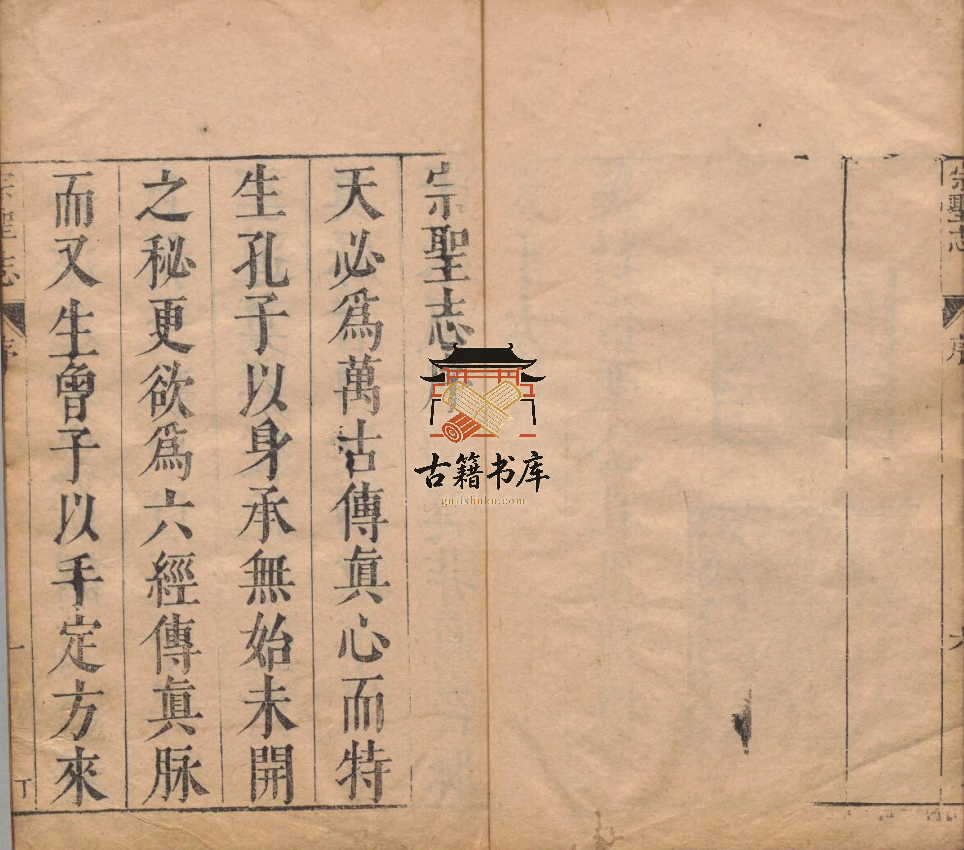 宗聖志
六
宗聖志序
天必爲萬古傳眞心而特
生孔子以身承無始未開
之秘更欲爲六經傳眞脉
而又生曾子以手定方來
宗聖志
序
一
古籍书库
gujishuku.com